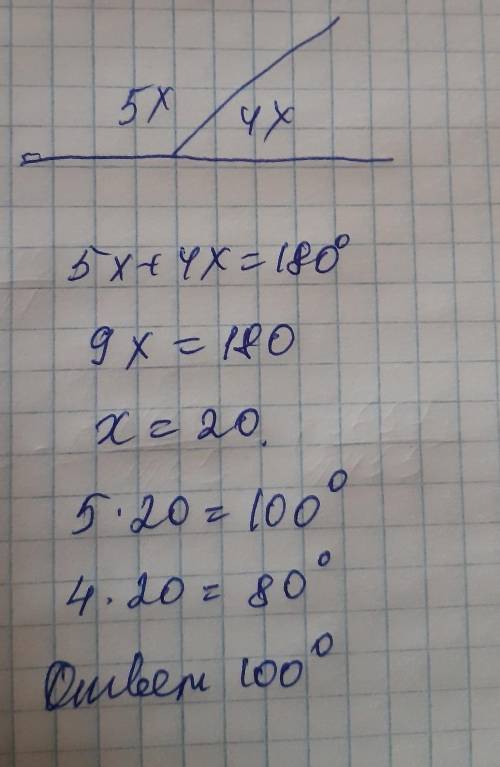 5x 4x
5x + 4x = 180°
9x = 180
x = 20.
5 · 20 = 100°
4 · 20 = 80°
Ответ 100°